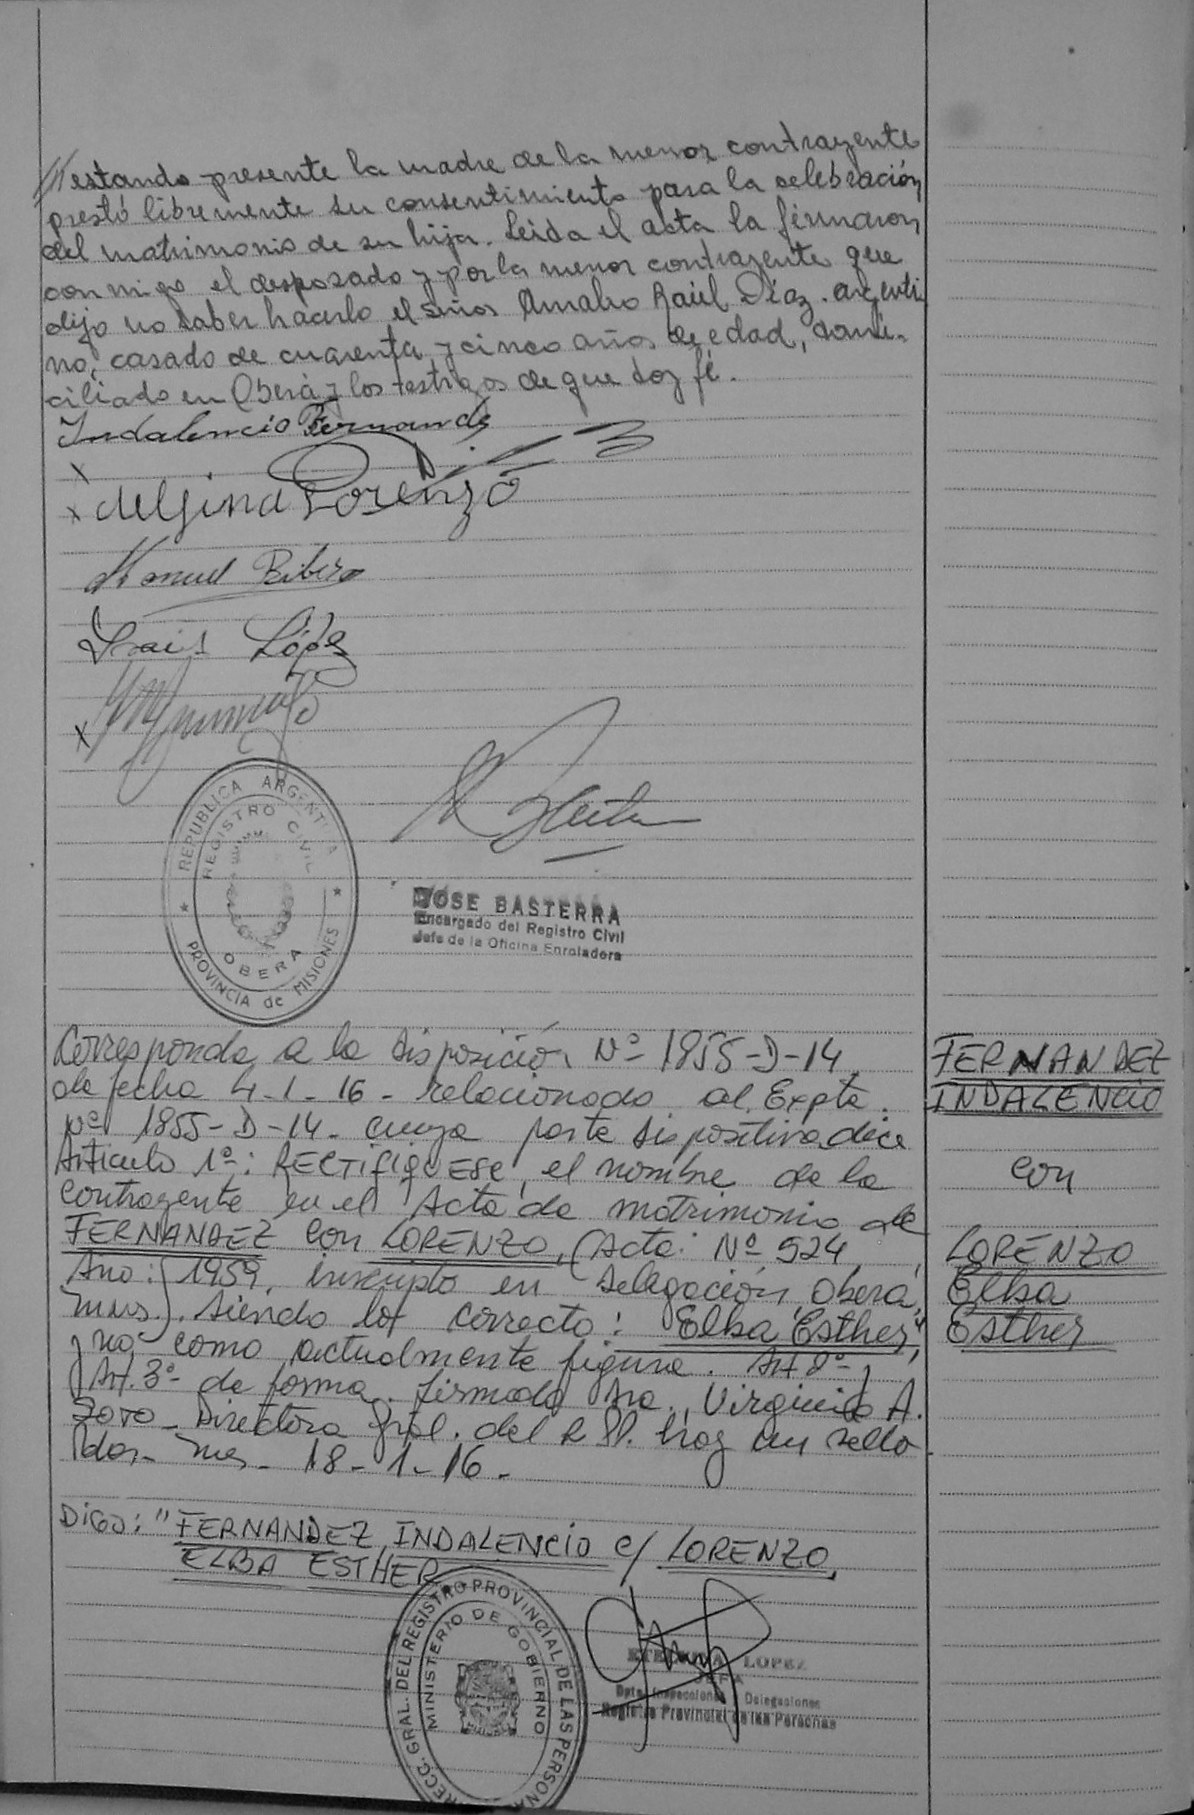 estando presente la madre de la menor contrayente
prestó libremente su consentimiento para la celebración
del matrimonio de su hija. Leida el acta la firmaron
conmigo el desposado y por la menor contrayente que
dijo no saber hacerlo el señor Amalio Raúl Díaz. argenti
no, casado de cuarenta y cinco años de edad, domi-
ciliado en Oberá y los testigos de que doy fé.
Indalencio Fernandes
x
x delgina Lorenzo
Manuel Ribero
López
x
REPUBLICA ARGENTINA
REGISTRO CIVIL
OBERA
PROVINCIA de MISIONES
JOSE BASTERRA
Encargado del Registro Civil
Jefe de la Oficina Enroladora
Corresponde a la disposición Nº 1855-D-14
de fecha 4-1-16 - relacionado al Expte.
nº 1855-D-14- cuya parte dispositiva dice
Articulo 1º: RECTIFIQUESE, el nombre de la
contrayente en el Acta de matrimonio de
FERNANDEZ con LORENZO, (Acta: Nº 524
Año: 1959, inscripto en Delegación Oberá,
Mnes). siendo lo correcto: "Elba Esther",
y no como actualmente figura. Art 2º- y
Art. 3º- de forma. firmado Dra. Virginia A.
- Directora Gral. del R.P. hay un sello
Pdas- Mes- 18-1-16-
FERNANDEZ
INDALENCIO
con
LORENZO
Elba
Esther
DIGO: "FERNANDEZ, INDALENCIO c/ LORENZO,
ELBA ESTHER
DIRECC. GRAL. DEL REGISTRO PROVINCIAL DE LAS PERSONAS
MINISTERIO DE GOBIERNO
LOPEZ
JEFA
Dpto. Inspecciones Delegaciones
Registro Provincial de las Personas